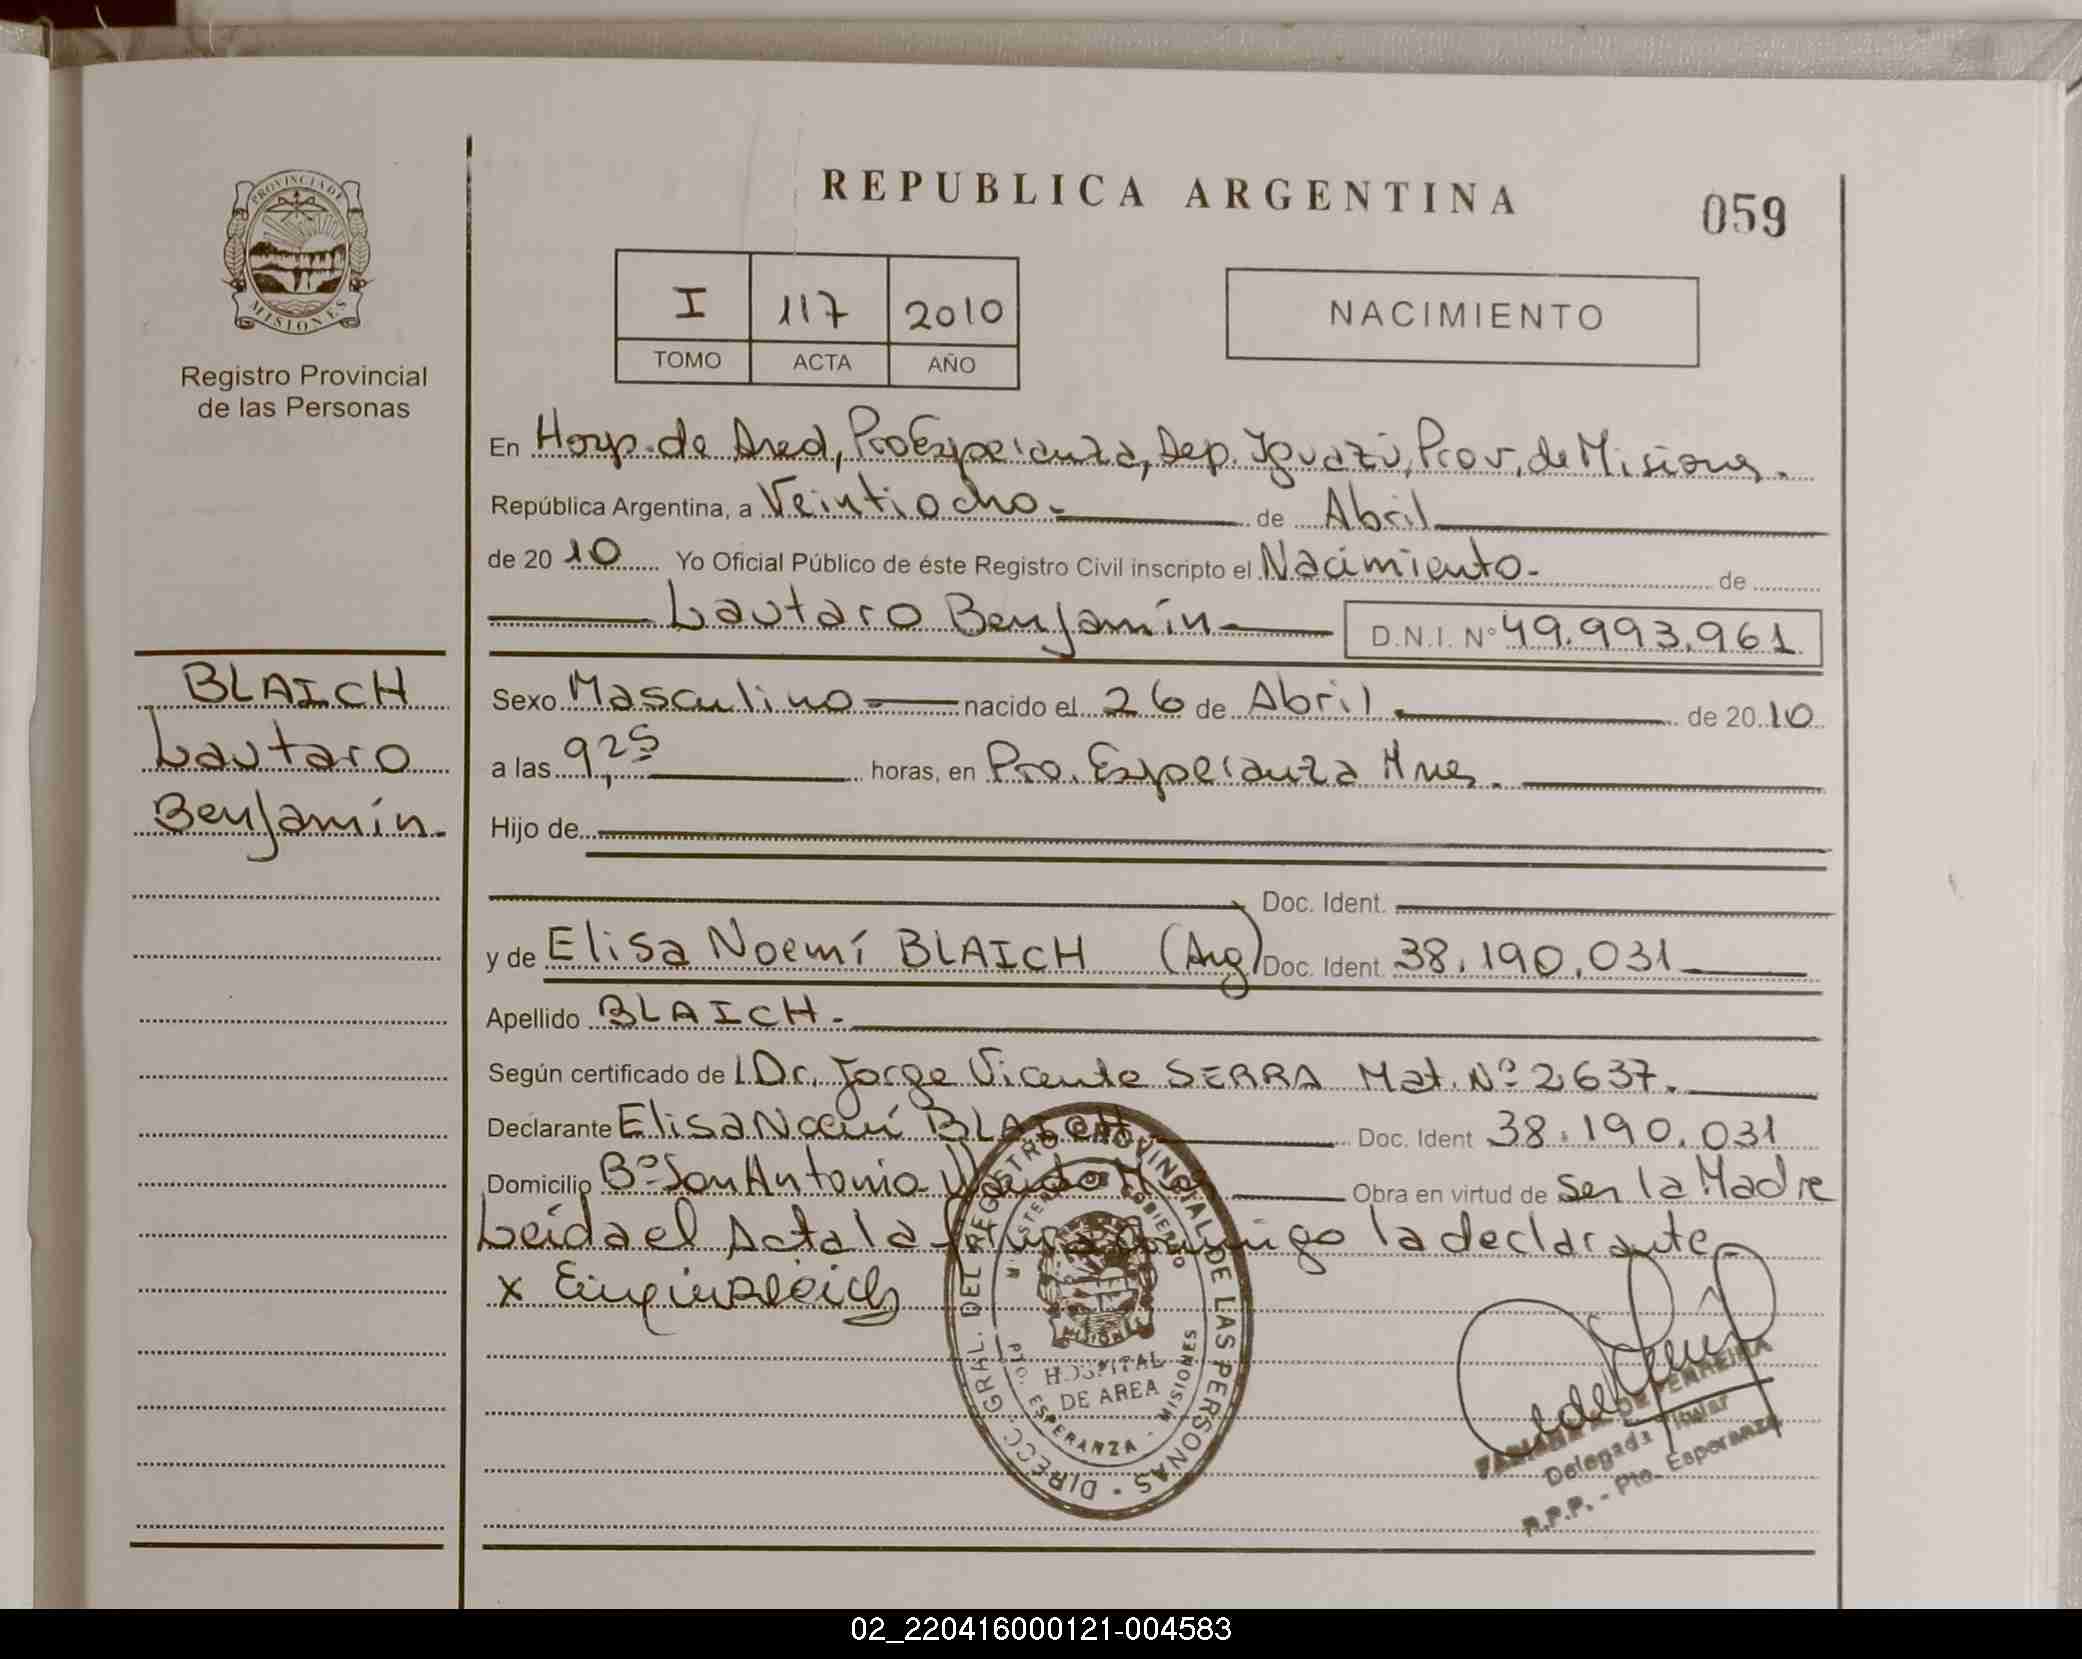 PROVINCIA DE
MISIONES
Registro Provincial
de las Personas
BLAICH
Lautaro
Benjamín.
REPUBLICA ARGENTINA
059
I 117 2010
TOMO ACTA AÑO
NACIMIENTO
En Hosp. de Area, Pto Esperanza, Dep. Iguazú, Prov. de Misiones.
República Argentina, a Veintiocho. de Abril
de 2010 Yo Oficial Público de éste Registro Civil inscripto el Nacimiento. de
Lautaro Benjamín. D.N.I. Nº 49.993.961
Sexo Masculino nacido el 26 de Abril. de 2010
a las 9,25 horas, en Pto. Esperanza Mnes.
Hijo de
Doc. Ident.
y de Elisa Noemí BLAICH (Arg) Doc. Ident. 38.190.031
Apellido BLAICH.
Según certificado de Dr. Jorge Vicente SERRA Mat. Nº 2637.
Declarante Elisa Noemí BLAICH Doc. Ident 38.190.031
Domicilio Bº San Antonio Wanda Mnes Obra en virtud de ser la Madre
Leida el Acta la firma conmigo la declarante.
x
DIRECC. GRAL. DEL REGISTRO PROVINCIAL DE LAS PERSONAS
MISIONES
HOSPITAL
DE AREA
PTO. ESPERANZA - MISIONES
DE FERREIRA
Delegada Titular
R.P.P. - Pto. Esperanza
02_220416000121-004583